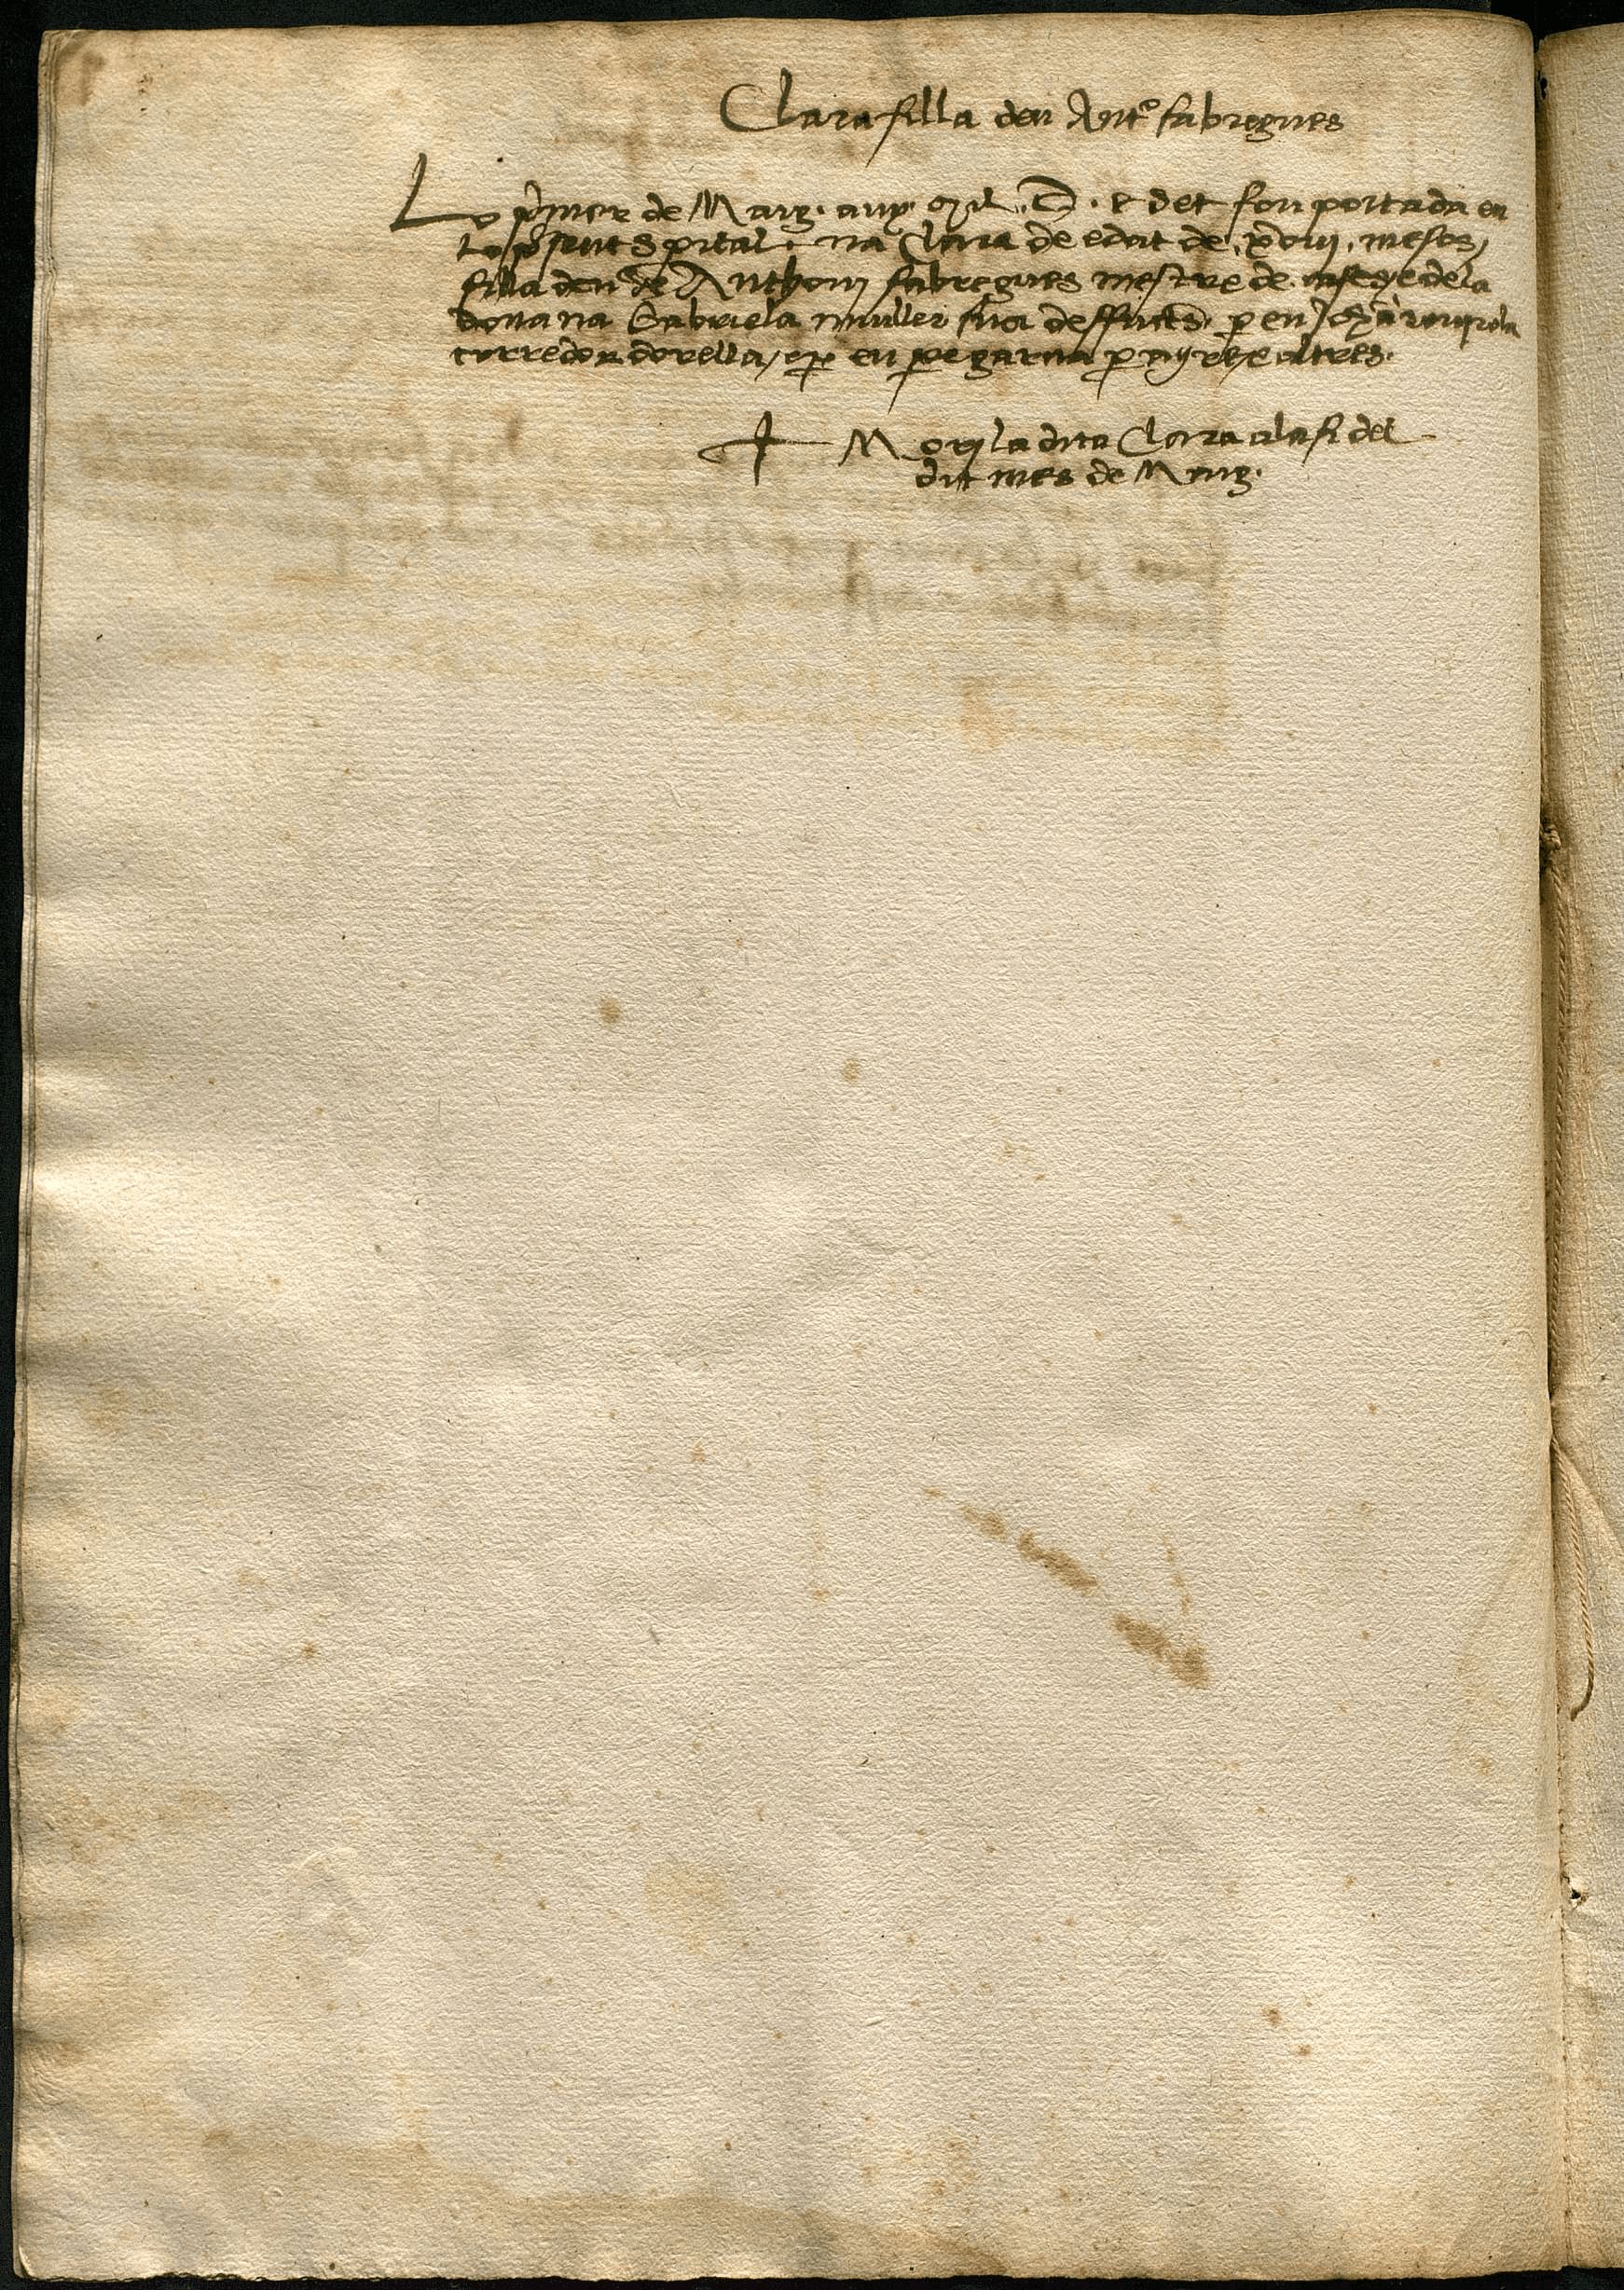 Clara filla den Antº fabregues
Lo p̃mer de Març. any. Mil. D. e set fon portada en
Lo p̃sent spital. na Clara de edat de. xviii. mesos,
filla den de Anthoni fabregues mestre de e dela
dona na Gabriela muller sua deffuncta. per en
corredor dorella, e per en pe garau per ayres e altres.
Mori la dita Clara ala fi del
dit mes de Març.